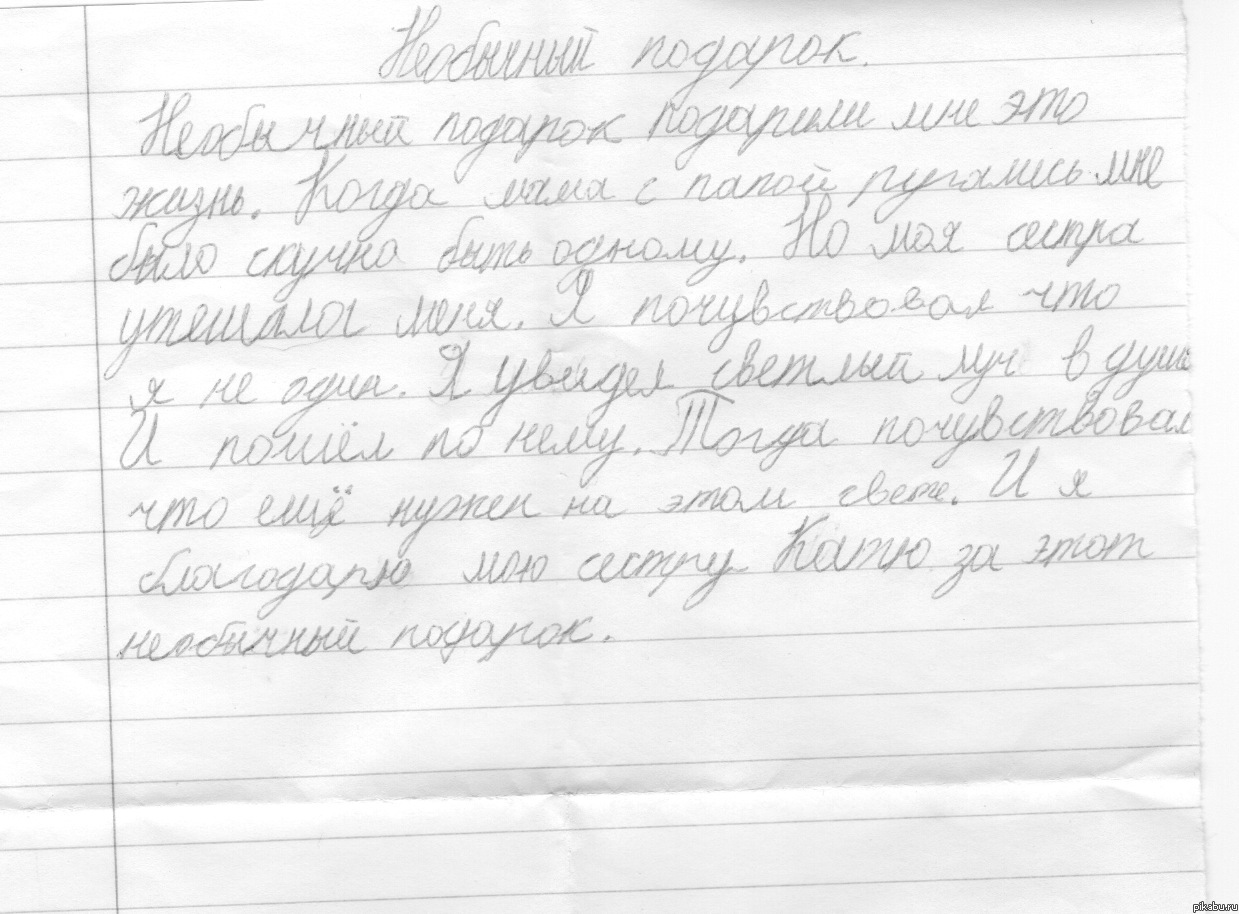 Необычный подарок.
Необычный подарок подарили мне это
жизнь. Когда мама с папой ругались мне
было скучно быть одному. Но моя сестра
утешалас меня. Я почувствовал что
я не один. Я увидел светлый луч в душе
И пошёл по нему. Тогда почувствовал
что ещё нужен на этом свете. И я
благодарю мою сестру Катю за этот
необычный подарок.
pikabu.ru